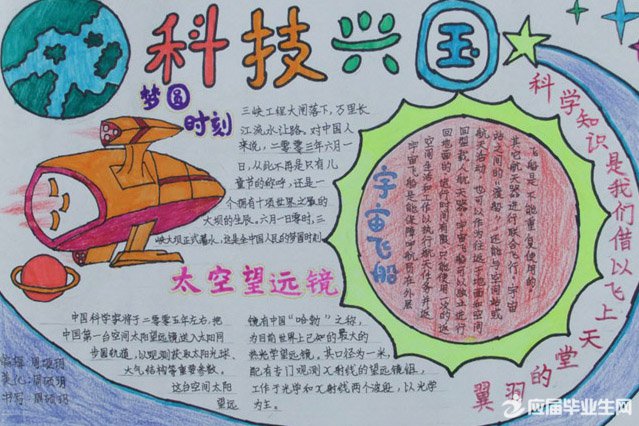 科技兴国
梦圆
时刻
三峡工程大闸落下,万里长
江流水让路。对中国人
来说,二零零三年六月一
日,从此不再是只有儿
童节的称呼,还是一
个拥有十项世界之最的
大坝的生辰。六月一日零时,三
峡大坝正式蓄水,这是全中国人民的梦圆时刻
太空望远镜
中国科学家将于二零零五年左右,把
中国第一台空间太阳望远镜送入太阳同
步国轨道,以观测获取太阳光球、
大气结构等重要参数。
这台空间太阳
望远
镜有中国“哈勃”之称,
为目前世界上已知的最大的
热光学望远镜。其口径为一米,
配有专门观测X射线的望远镜组,
工作于光学和X射线两个波段,以光学
为主。
宇宙飞船
飞船是不能重复使用的
其它航天器进行联合飞行。宇宙
站之间的渡船,还能与空间站或
航天活动,也可以作为往返于地面和空间
回型载人航天器。宇宙飞船可以独立进行
回地面的运行时间有限,只能使用一次的返
空间生活和工作以执行航天任务并返
宇宙飞船是能保障航天员在外层
科学知识是我们借以飞上天堂的翼羽
编辑:
美化:
书写:
应届毕业生网